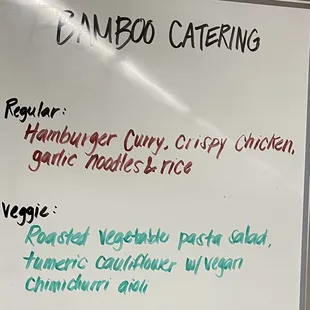 BAMBOO CATERING
Regular:
Hamburger Curry, crispy chicken,
garlic noodles & rice
Veggie:
Roasted vegetable pasta salad,
tumeric cauliflower w/ vegan
chimichurri aioli